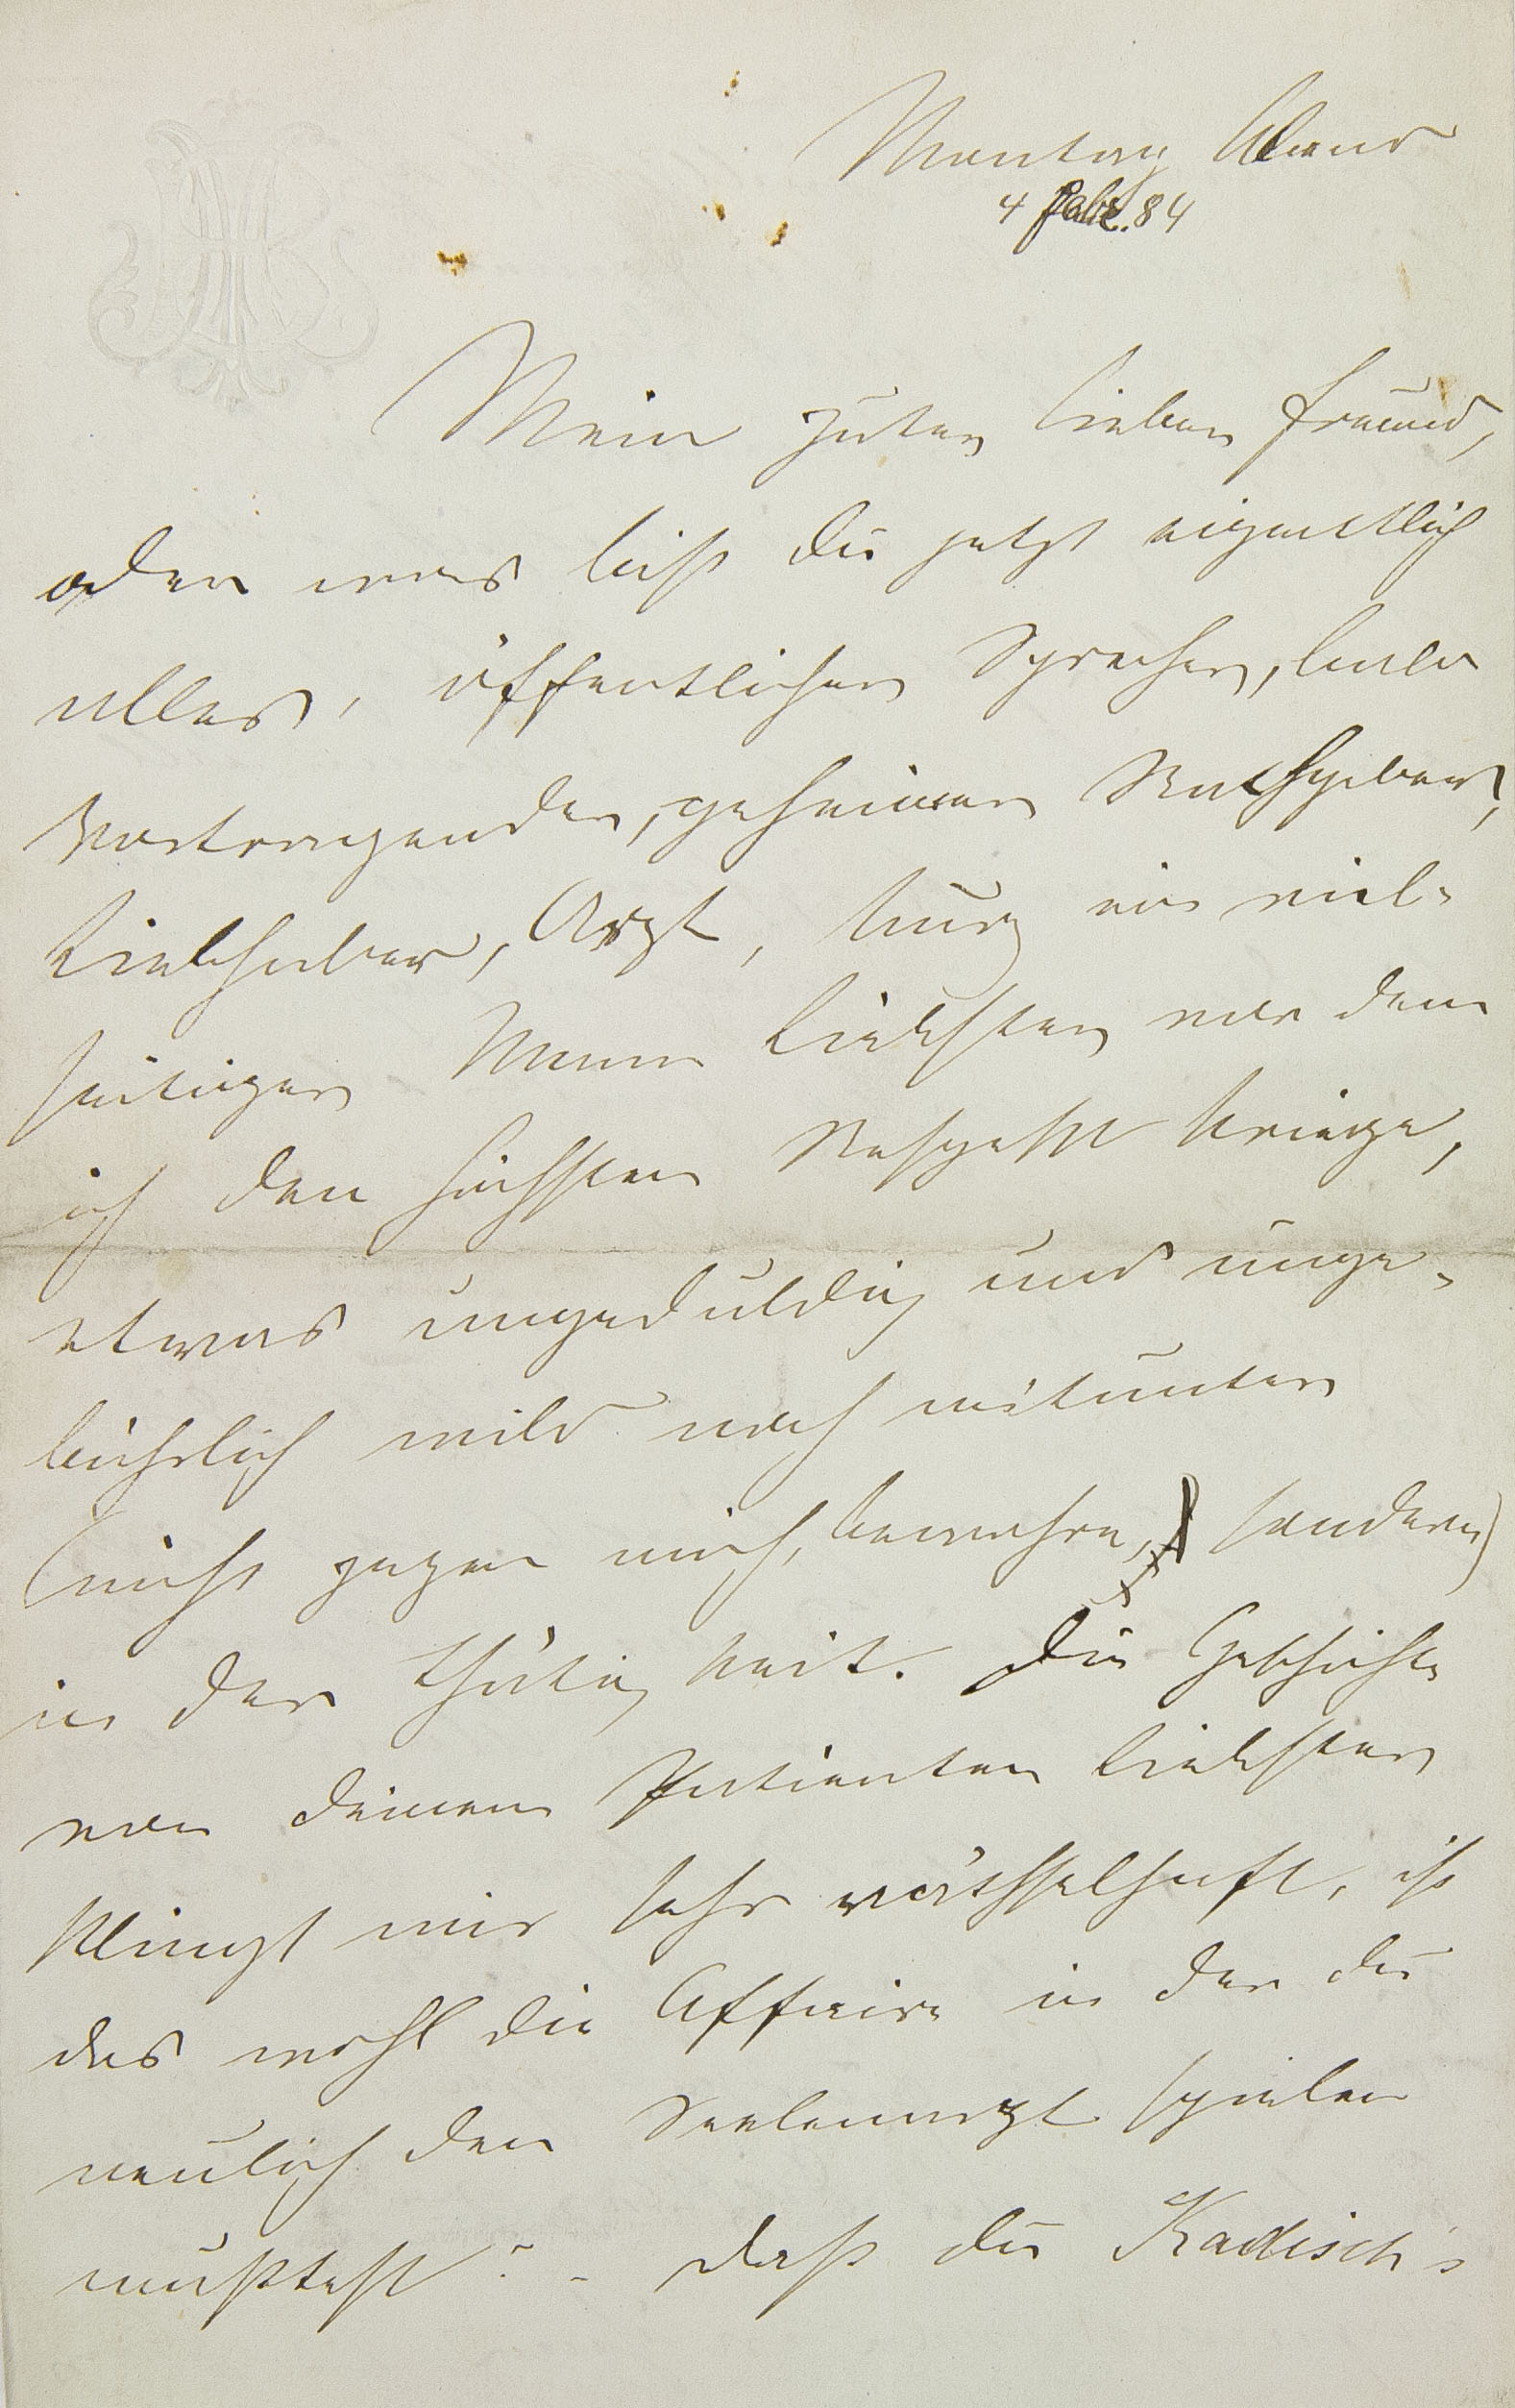 Montag Abend
4 Febr. 84
Mein guter lieber Freund,
oder was bist Du jetzt eigentlich
alles, öffentlicher Sprecher, bald
Vortragender, geheimer Rathgeber,
Liebhaber, Arzt, kurz ein viel-
seitiger Mann Liebster vor dem
ich den höchsten Respekt kriege,
etwas ungeduldig und unge-
bührlich wild noch mitunter
(nicht gegen mich, bewahre, sondern)
in der Thätigkeit. Die Geschichte
von Deinem Patienten Liebster
klingt mir sehr räthselhaft, ist
das wohl die Affaire in der Du
neulich den Seelenarzt spielen
mußtest? – Daß Du Kadisch's